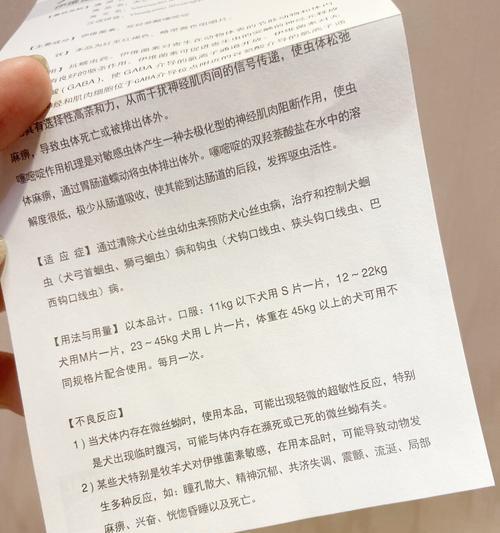 体死亡或被排出体外。
具有选择性高亲和力，从而干扰神经肌肉间的信号传递，使虫体松弛
麻痹，导致虫体死亡或被排出体外。
噻嘧啶作用机理是对敏感虫体产生一种去极化型的神经肌肉阻断作用，使虫
体麻痹，通过胃肠道蠕动将虫体排出体外。噻嘧啶的双羟萘酸盐在水中的溶
解度很低，极少从肠道吸收，使其能到达肠道的后段，发挥驱虫活性。
【适 应 症】通过清除犬心丝虫幼虫来预防犬心丝虫病，治疗和控制犬蛔
虫（犬弓首蛔虫、狮弓蛔虫）病和钩虫（犬钩口线虫、狭头钩口线虫、巴
西钩口线虫）病。
【用法与用量】以本品计。口服：11kg 以下犬用 S 片一片，12～22kg
犬用M片一片，23～45kg 犬用 L 片一片，体重在 45kg 以上的犬可用不
同规格片配合使用。每月一次。
【不良反应】
1）当犬体内存在微丝蚴时，使用本品，可能出现轻微的超敏性反应，特别
是犬出现临时腹泻，可能与体内存在濒死或已死的微丝蚴有关。
2）某些犬特别是牧羊犬对伊维菌素敏感，在用本品时，可能导致动物发
生多种反应，如：瞳孔散大、精神沉郁、共济失调、震颤、流涎、局部
麻痹、兴奋、恍惚昏睡以及死亡。